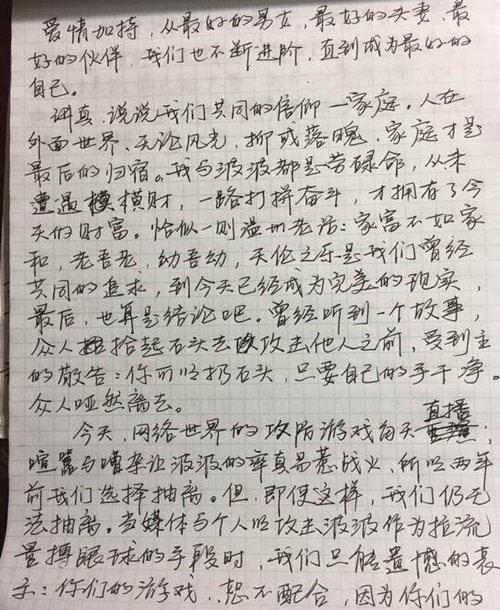 爱情加持，从最好的男女，最好的夫妻，最
好的伙伴，我们也不断进阶，直到成为最好的
自己。
讲真，说说我们共同的信仰一家庭。人在
外面世界，无论风光，抑或落魄，家庭才是
最后的归宿。我与波波都是劳碌命，从未
遭遇横财，一路打拼奋斗，才拥有了今
天的财富。恰似一则温州老话：家富不如家
和，老吾老，幼吾幼，天伦之乐是我们曾经
共同的追求，到今天已经成为完美的现实，
最后，也算是结论吧。曾经听到一个故事，
众人拾起石头去攻击他人之前，受到主
的敬告：你可以扔石头，只要自己的手干净。
众人哑然离去。
今天，网络世界的攻防游戏每天直播，
喧嚣与嘈杂让波波的率真易惹战火，所以两年
前我们选择抽离。但，即使这样，我们仍无
法抽离。当媒体与个人以攻击波波作为拉流
量搏眼球的手段时，我们只能遗憾的表
示：你们的游戏，恕不配合，因为你们的